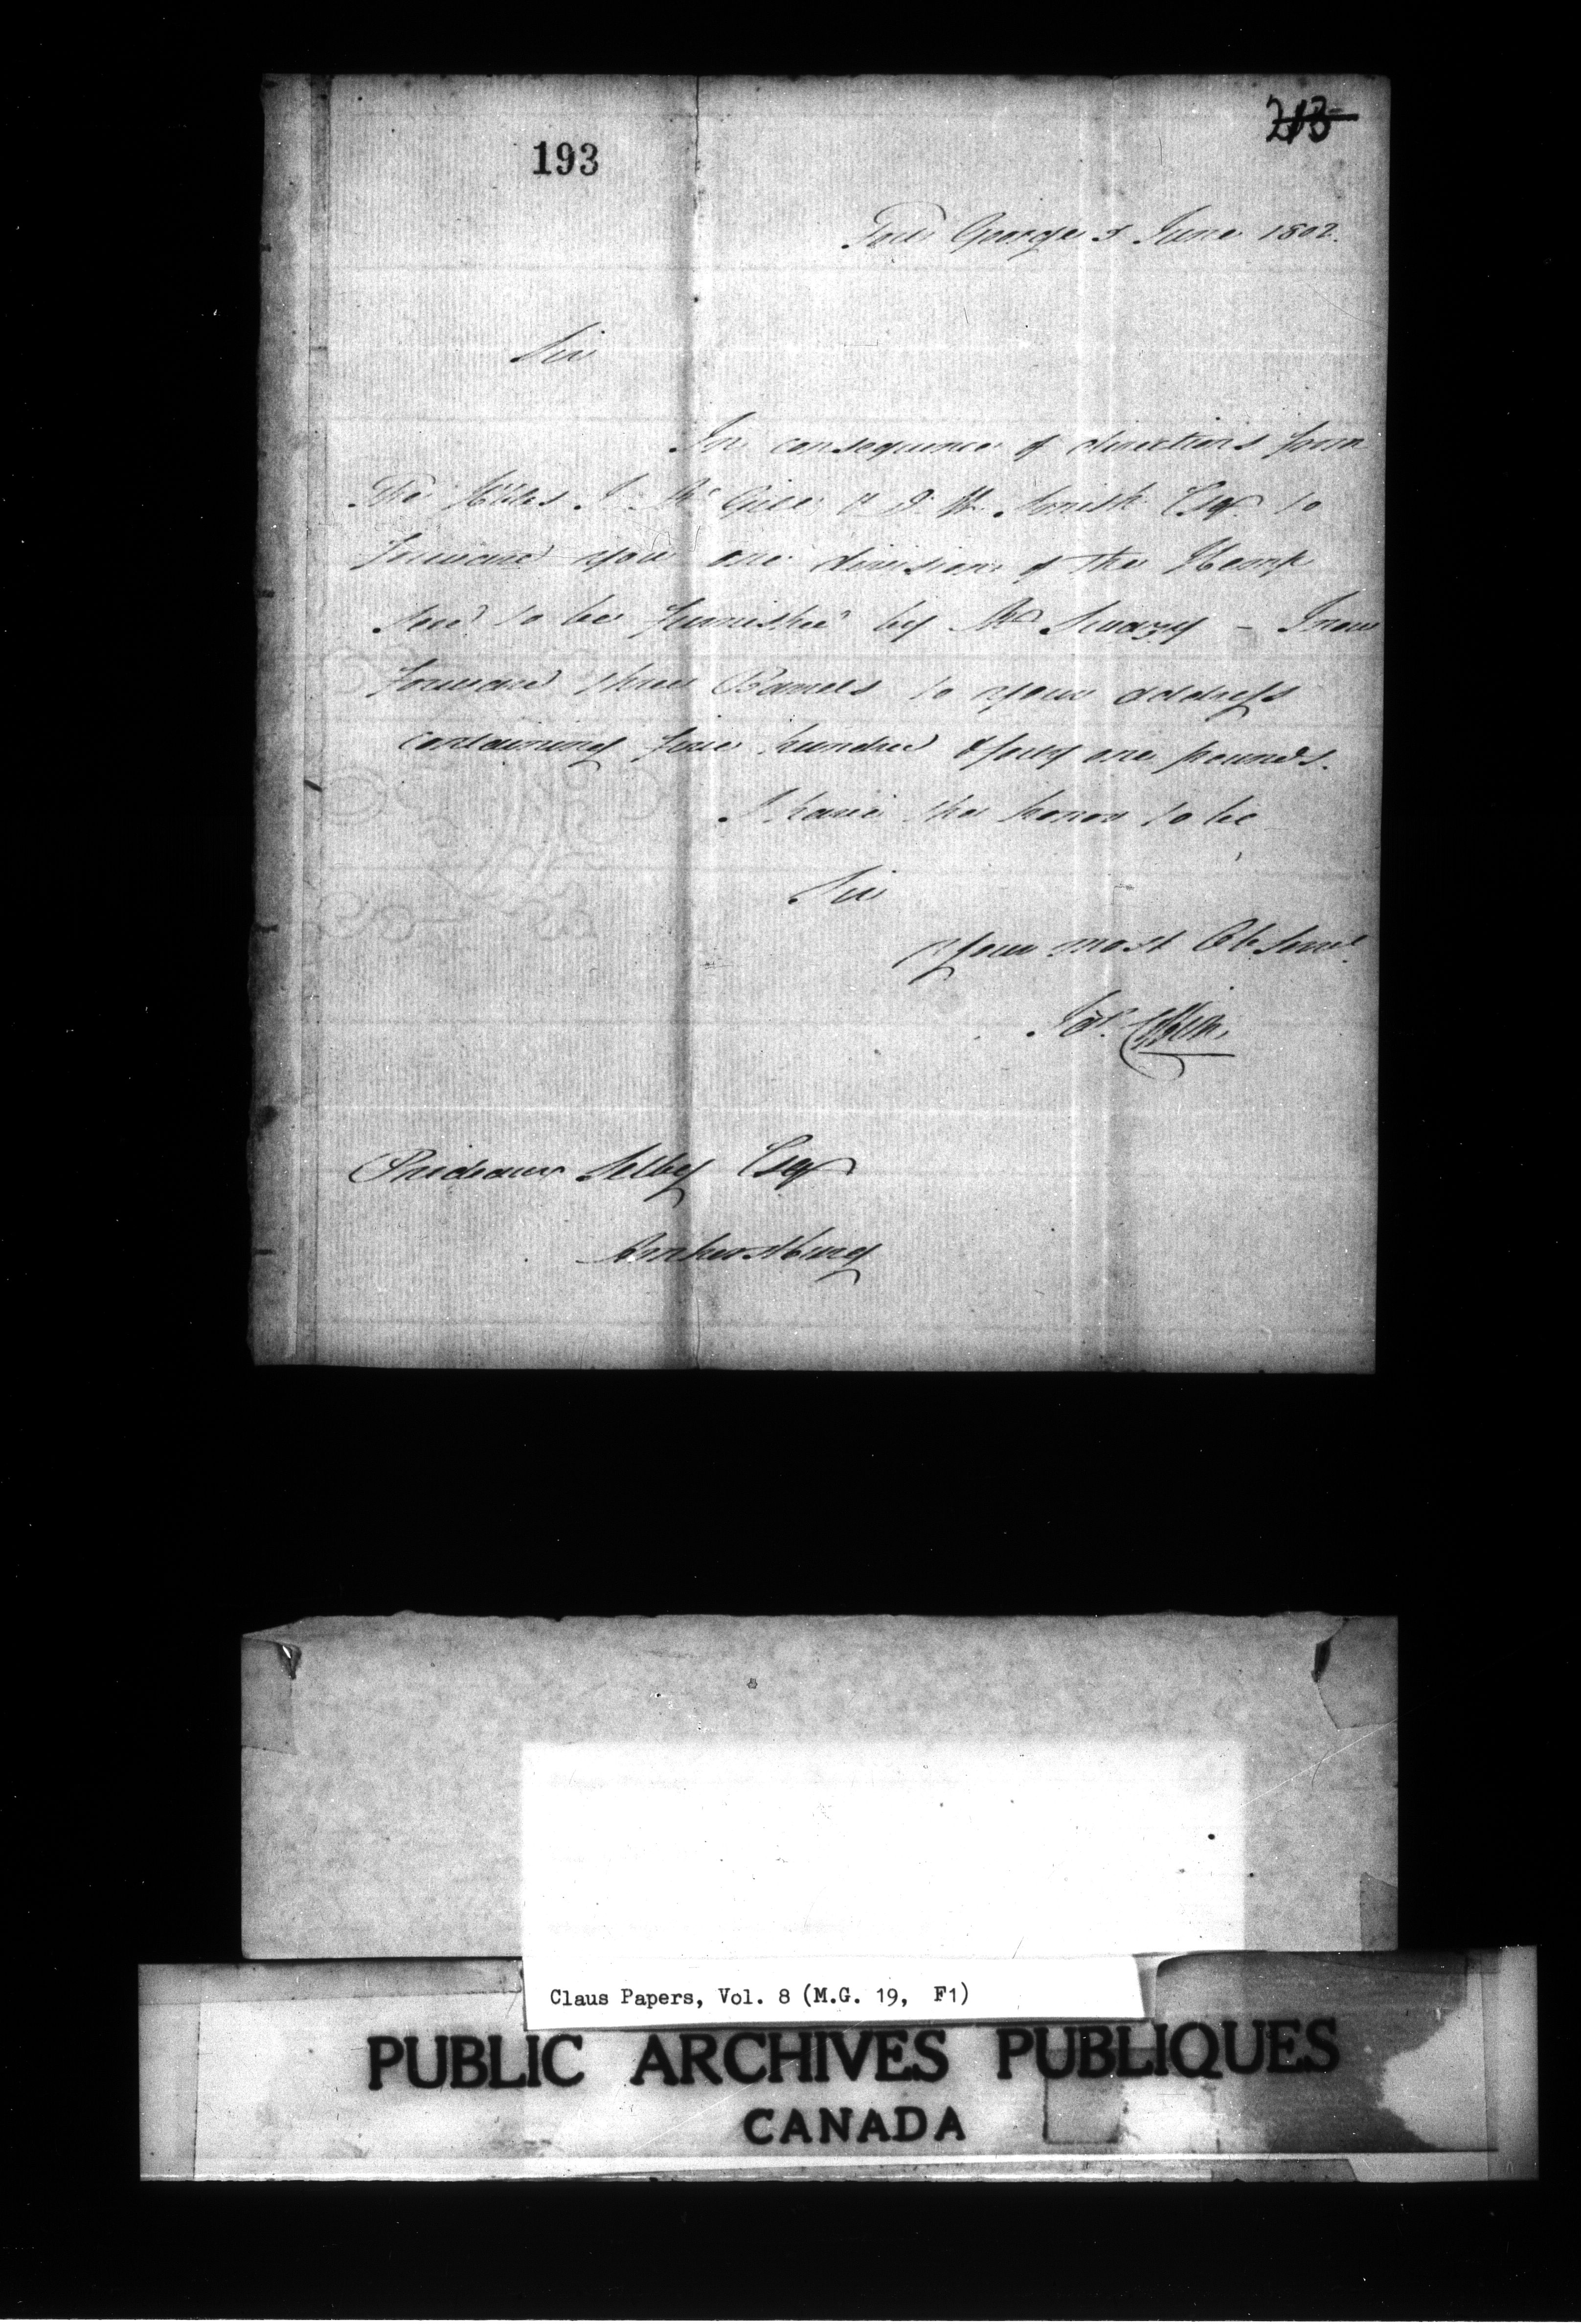 213
193
Fort George 5 June 1802.
Sir
In consequence of directions from
The Honbles J. McGill & D. W. Smith Esqr to
forward you one division of the Hemp
seed to be furnished by Mr Swazy – I now
forward three Barrels to your address
containing five hundred & forty one pounds.
I have the honor to be
Sir
Your most Ob Servt
Jas. Clark
Prideaux Selby Esqr
Amherstburg
Claus Papers, Vol. 8 (M.G. 19, F1)
PUBLIC ARCHIVES PUBLIQUES
CANADA